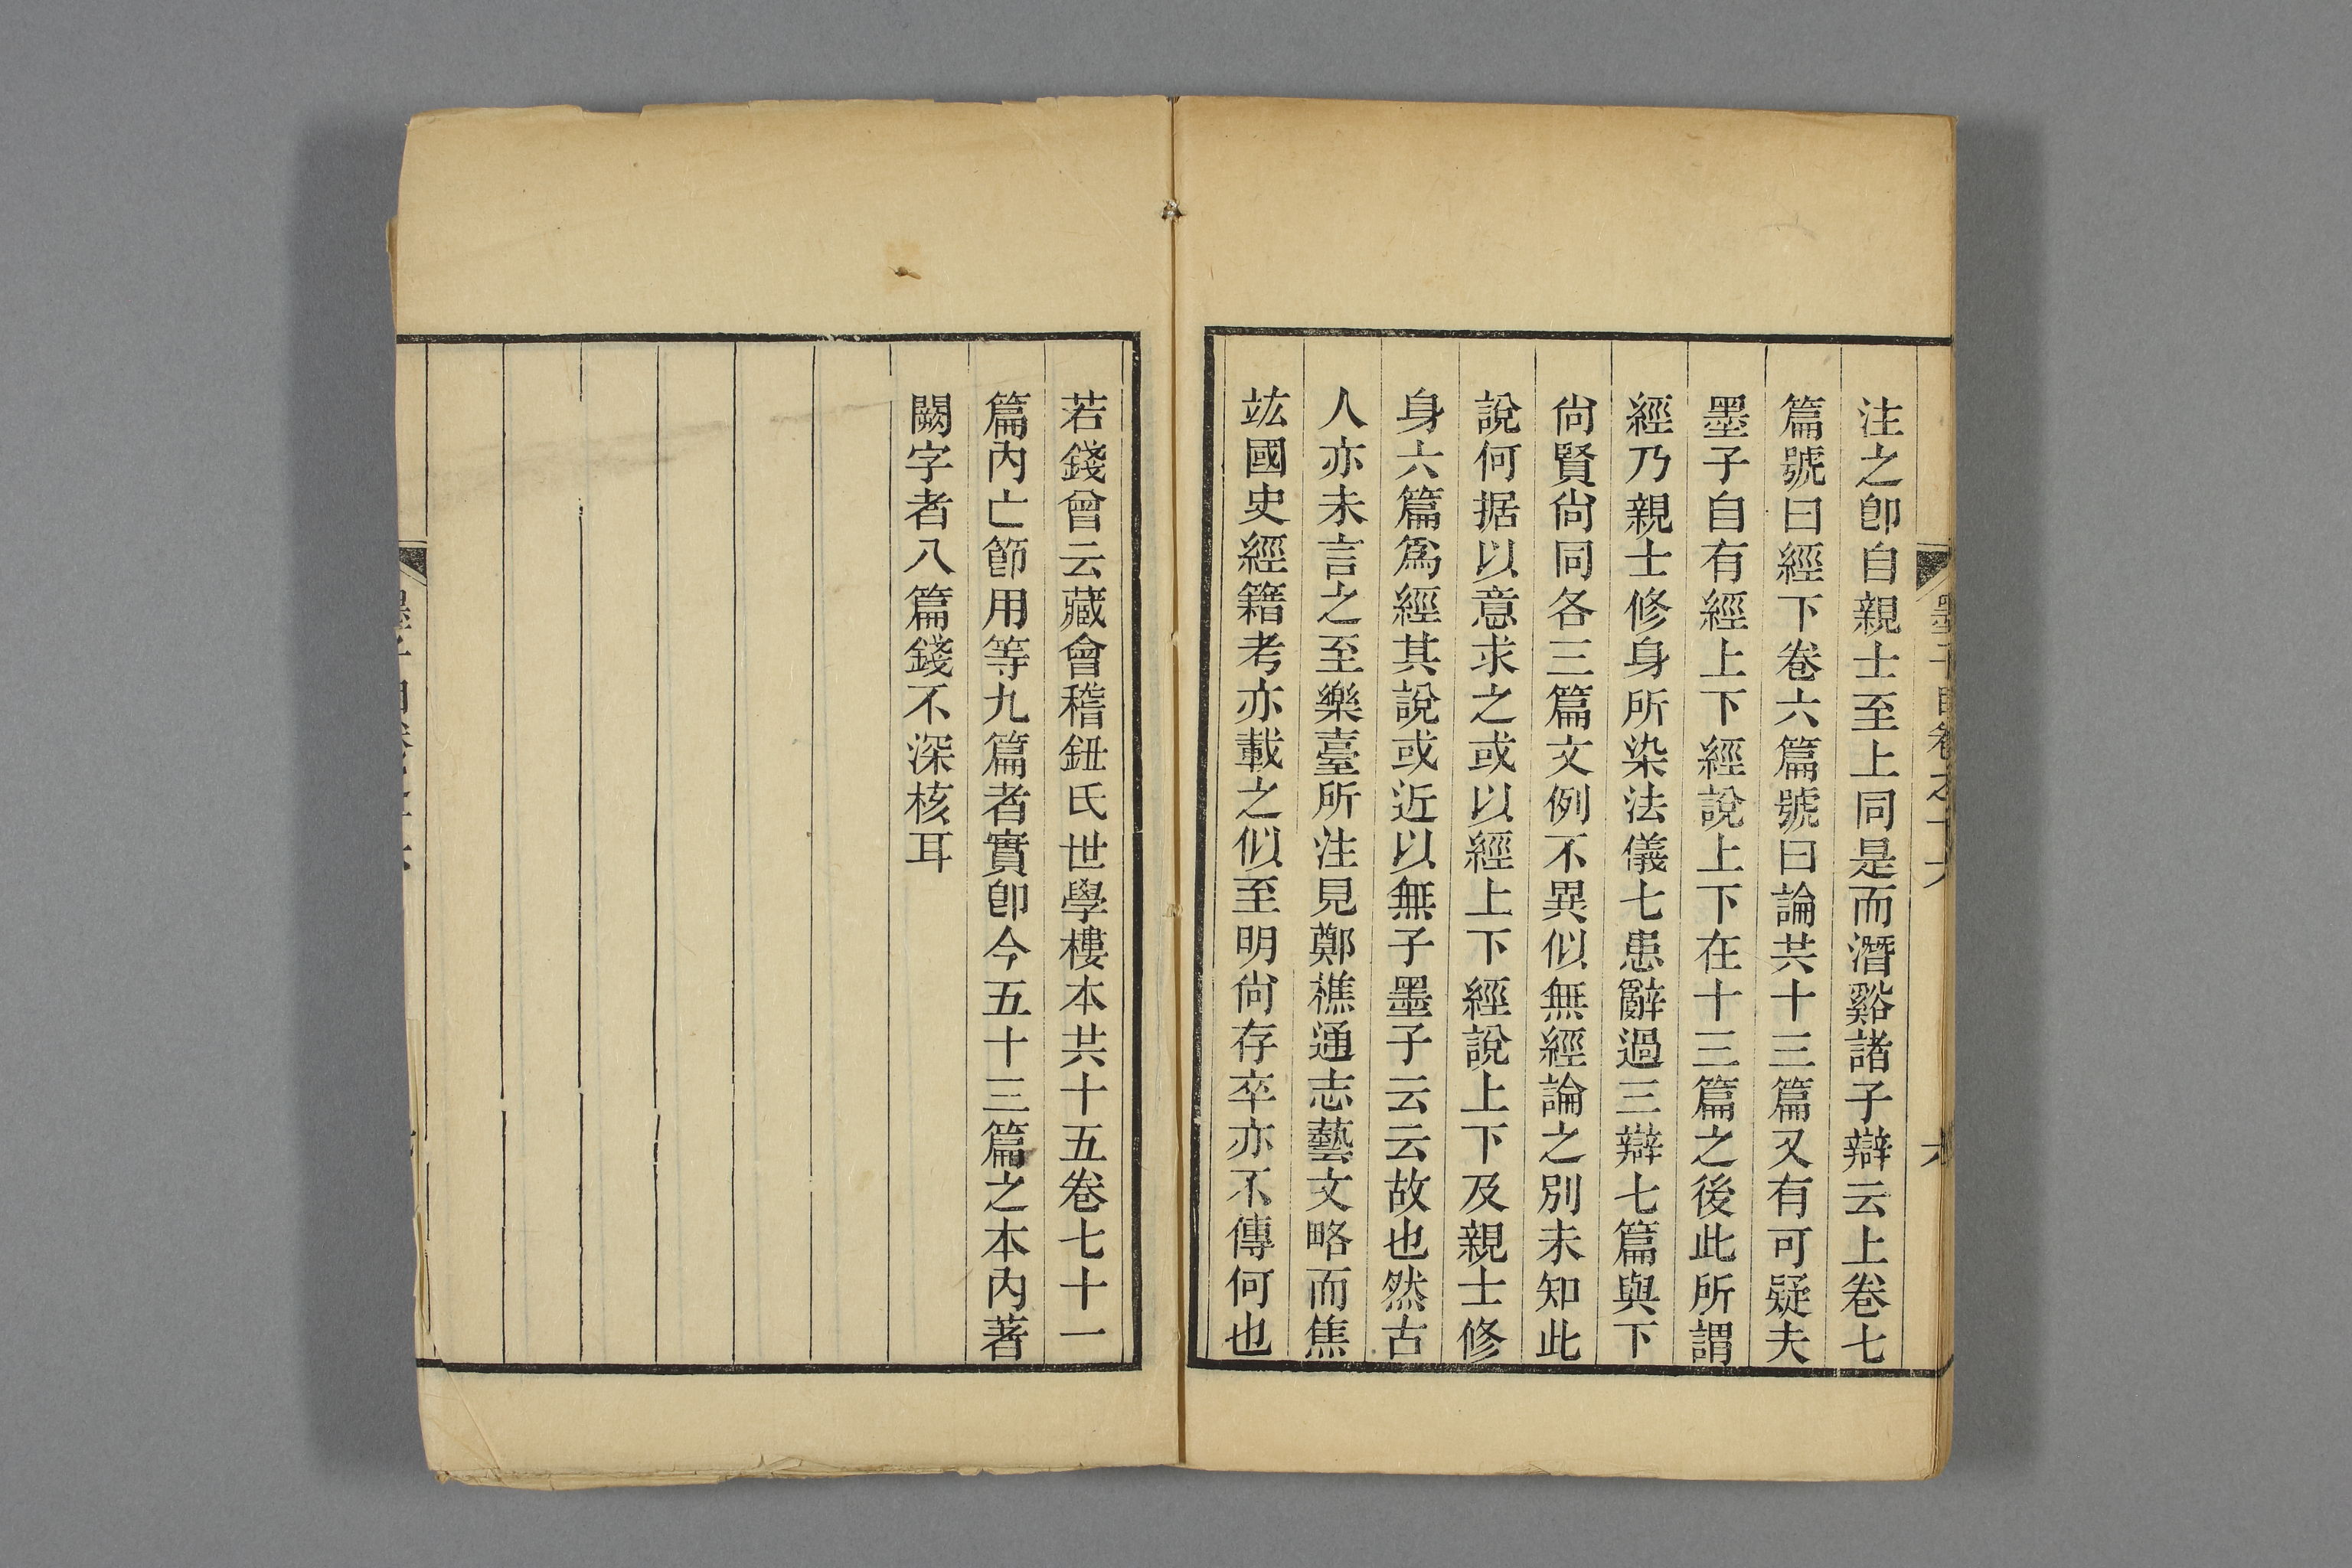 注之卽自親士至上同是而潛谿諸子辯云上卷七
篇號曰經下卷六篇號曰論共十三篇又有可疑夫
墨子自有經上下經說上下在十三篇之後此所謂
經乃親士修身所染法儀七患辭過三辯七篇與下
尙賢尙同各三篇文例不異似無經論之別未知此
說何据以意求之或以經上下經說上下及親士修
身六篇爲經其說或近以無子墨子云云故也然古
人亦未言之至樂臺所注見鄭樵通志藝文略而焦
竑國史經籍考亦載之似至明尙存卒亦不傳何也
若錢曾云藏會稽鈕氏世學樓本共十五卷七十一
篇內亡節用等九篇者實卽今五十三篇之本內著
闕字者八篇錢不深核耳